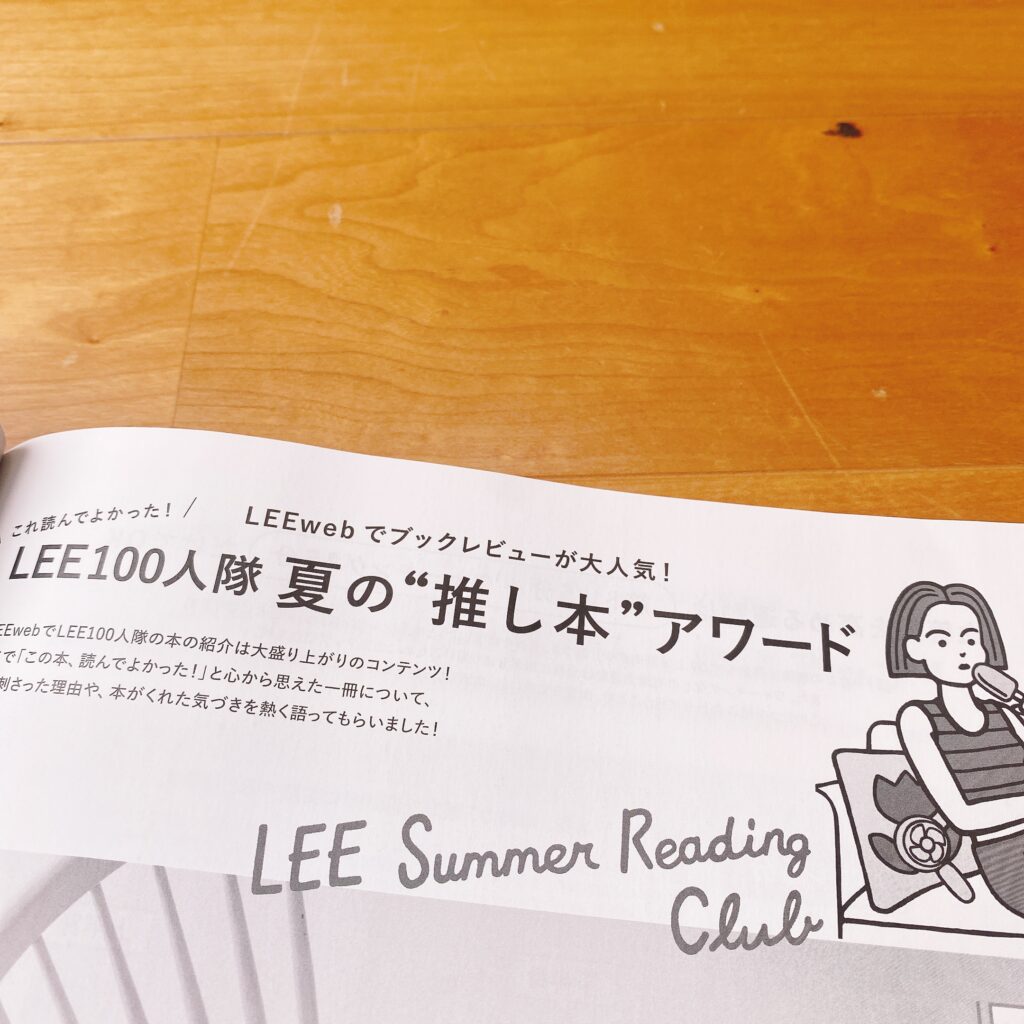 これ読んでよかった！
LEEwebでブックレビューが大人気！
LEE100人隊 夏の“推し本”アワード
EEwebでLEE100人隊の本の紹介は大盛り上がりのコンテンツ！
で「この本、読んでよかった！」と心から思えた一冊について、
刺さった理由や、本がくれた気づきを熱く語ってもらいました！
LEE Summer Reading
Club